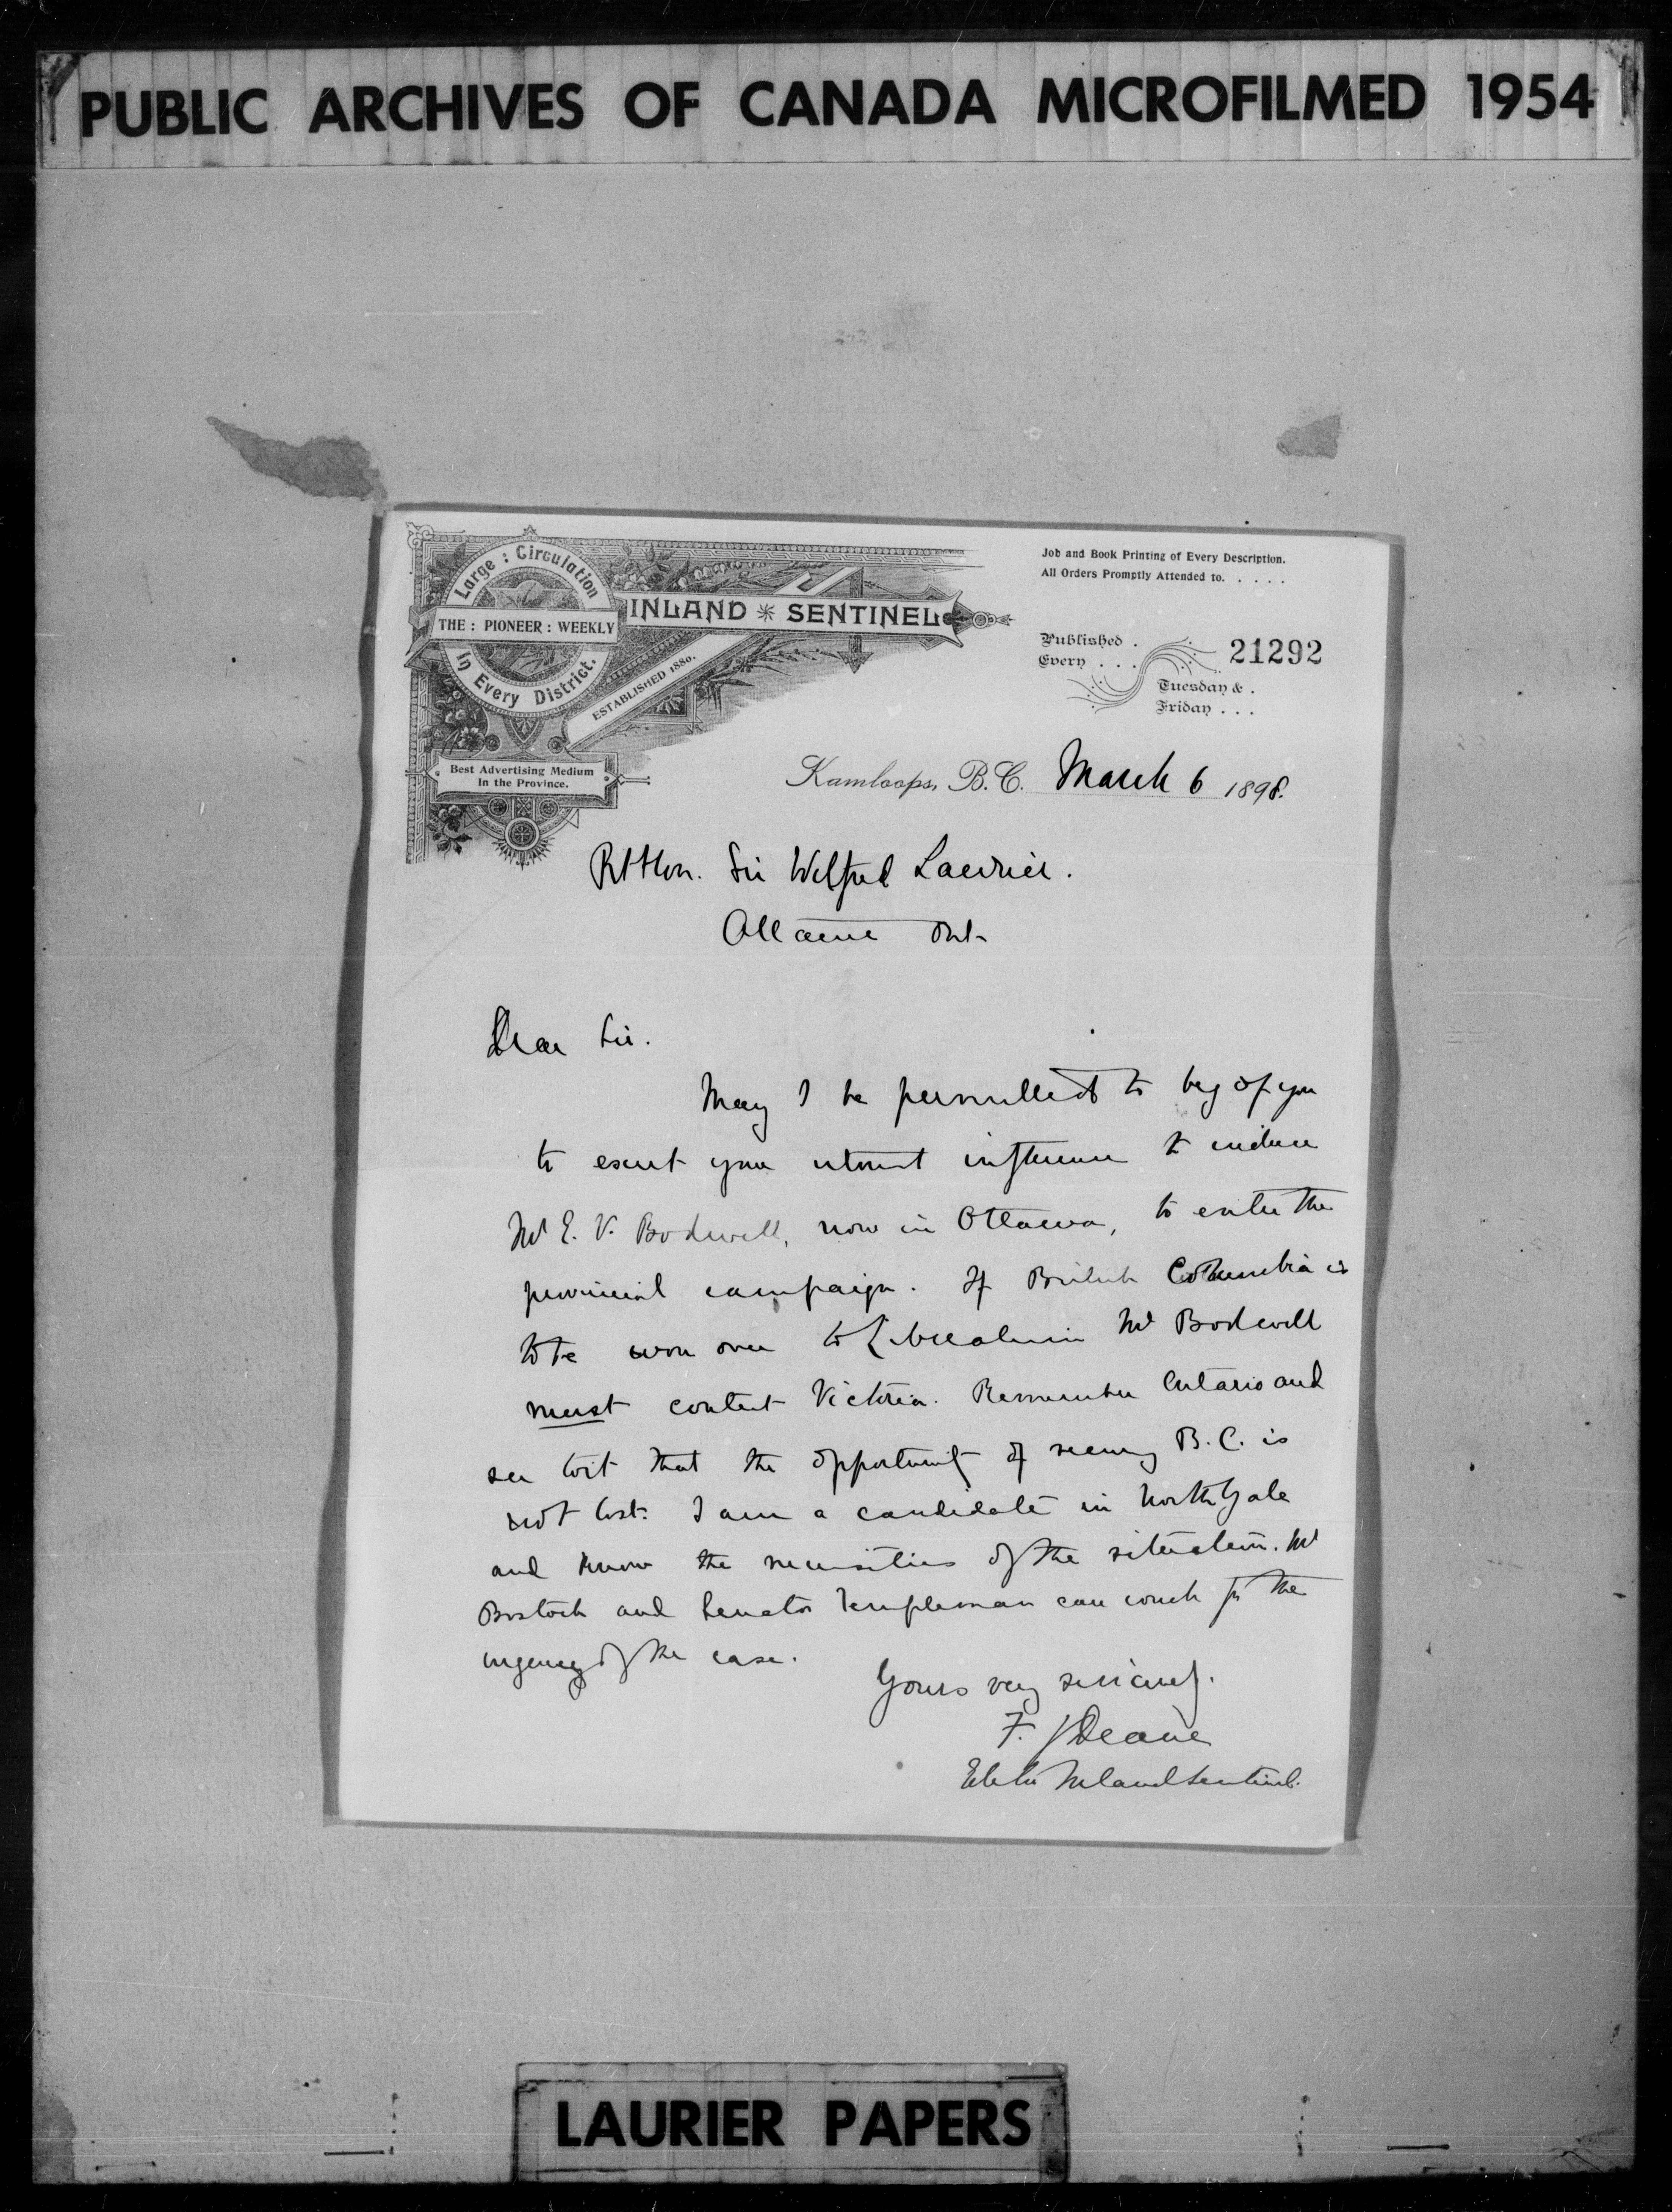 PUBLIC ARCHIVES OF CANADA MICROFILMED 1954
Large : Circulation
THE : PIONEER : WEEKLY
In Every District.
INLAND SENTINEL
ESTABLISHED 1880.
Best Advertising Medium
In the Province.
Job and Book Printing of Every Description.
All Orders Promptly Attended to. . . . .
Published .
Every . . .
21292
Tuesday & .
Friday . . .
Kamloops, B.C. March 6 1898.
Rt Hon. Sir Wilfred Laurier.
Ottawa Ont
Dear Sir.
May I be permitted to beg of you
to exert your utmost influence to induce
Mr E. V. Bodwell, now in Ottawa, to enter the
provincial campaign. If British Columbia is
to be won over to Liberalism Mr Bodwell
must contest Victoria. Remember Ontario and
see to it that the opportunity of securing B.C. is
not lost. I am a candidate in North Yale
and know the necessities of the situation. Mr
Bostock and Senator Templeman can vouch for the
urgency of the case.
Yours very sincerely.
F. J Deane
Editor Inland Sentinel.
LAURIER PAPERS